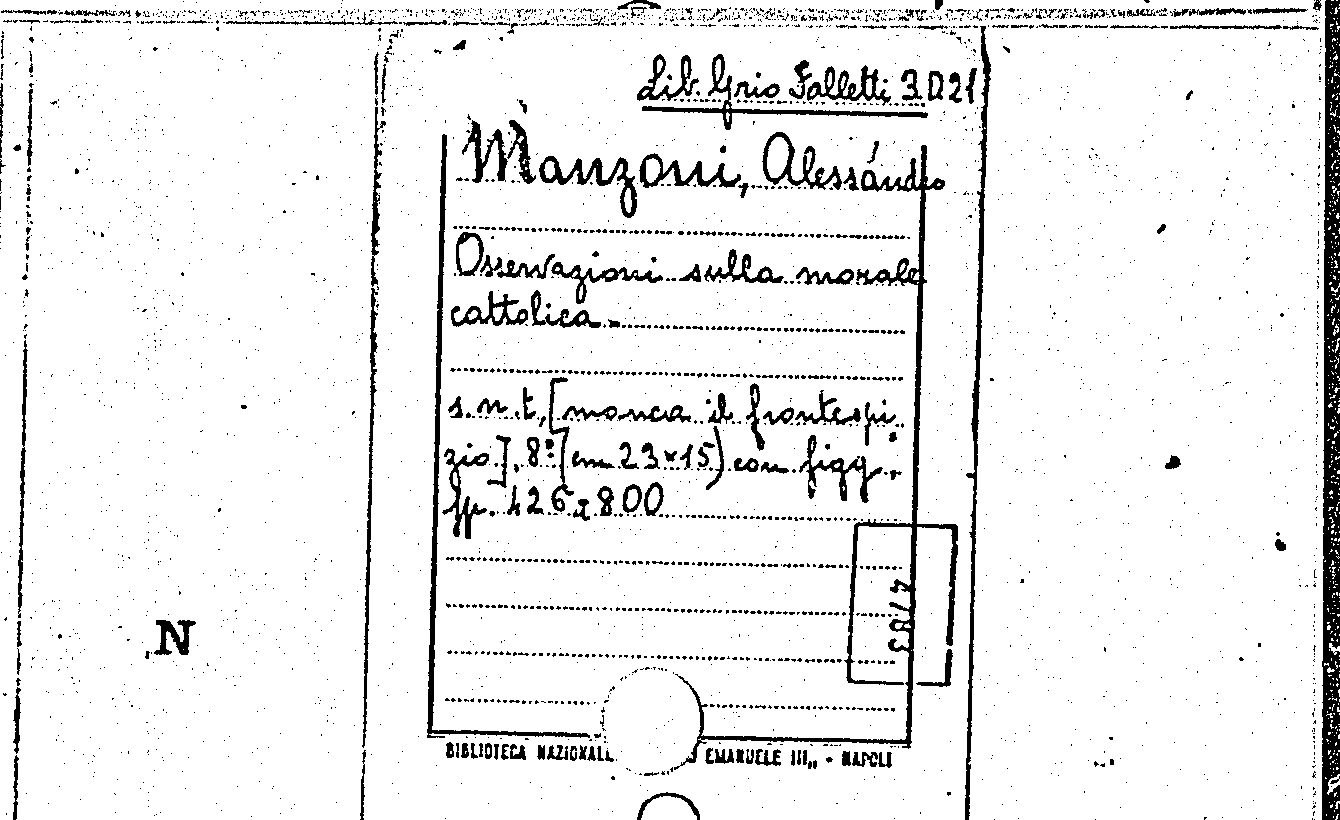 Lib. Grio Falletti 3.D.21
Manzoni, Alessandro
Osservazioni sulla morale
cattolica.
s.n.t, [manca il frontespi
zio]. 8º (cm 23×15) con figg.
pp. 426 a 800
4783
N
BIBLIOTECA NAZIONALE EMANUELE III„ - NAPOLI